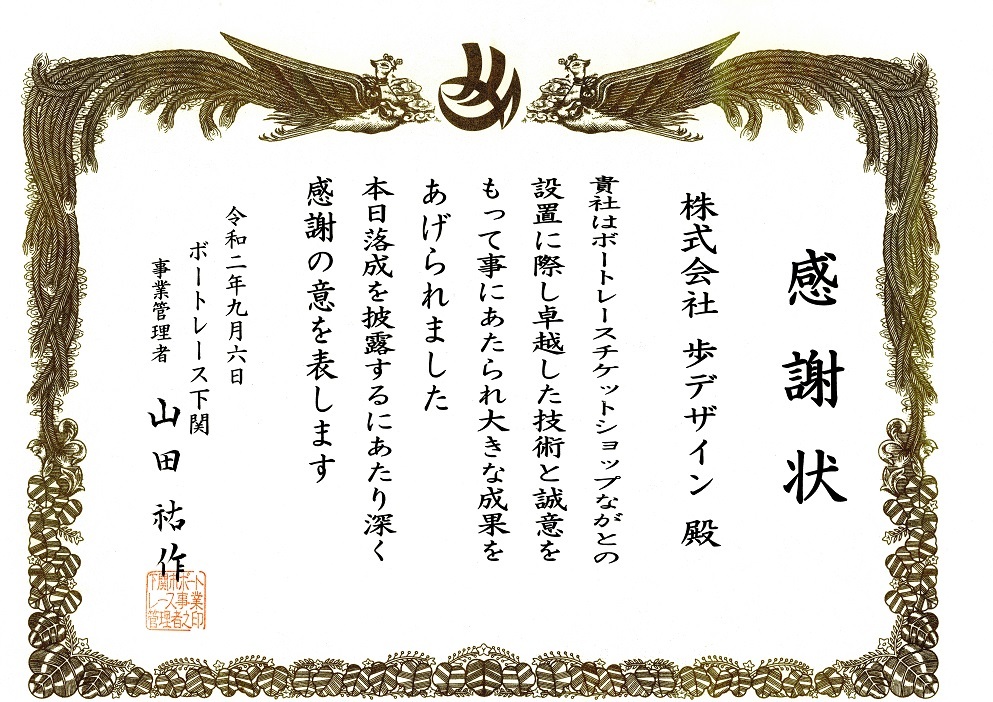 感謝状
株式会社 歩デザイン 殿
貴社はボートレースチケットショップながとの
設置に際し卓越した技術と誠意を
もって事にあたられ大きな成果を
あげられました
本日落成を披露するにあたり深く
感謝の意を表します
令和二年九月六日
ボートレース下関
事業管理者 山田 祐作
下関市ボート
レース事業
管理者之印